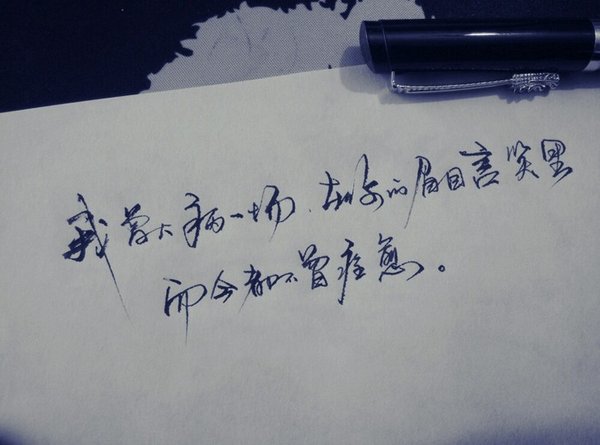 我曾大病一场，在你的眉目言笑里
而今都不曾痊愈。